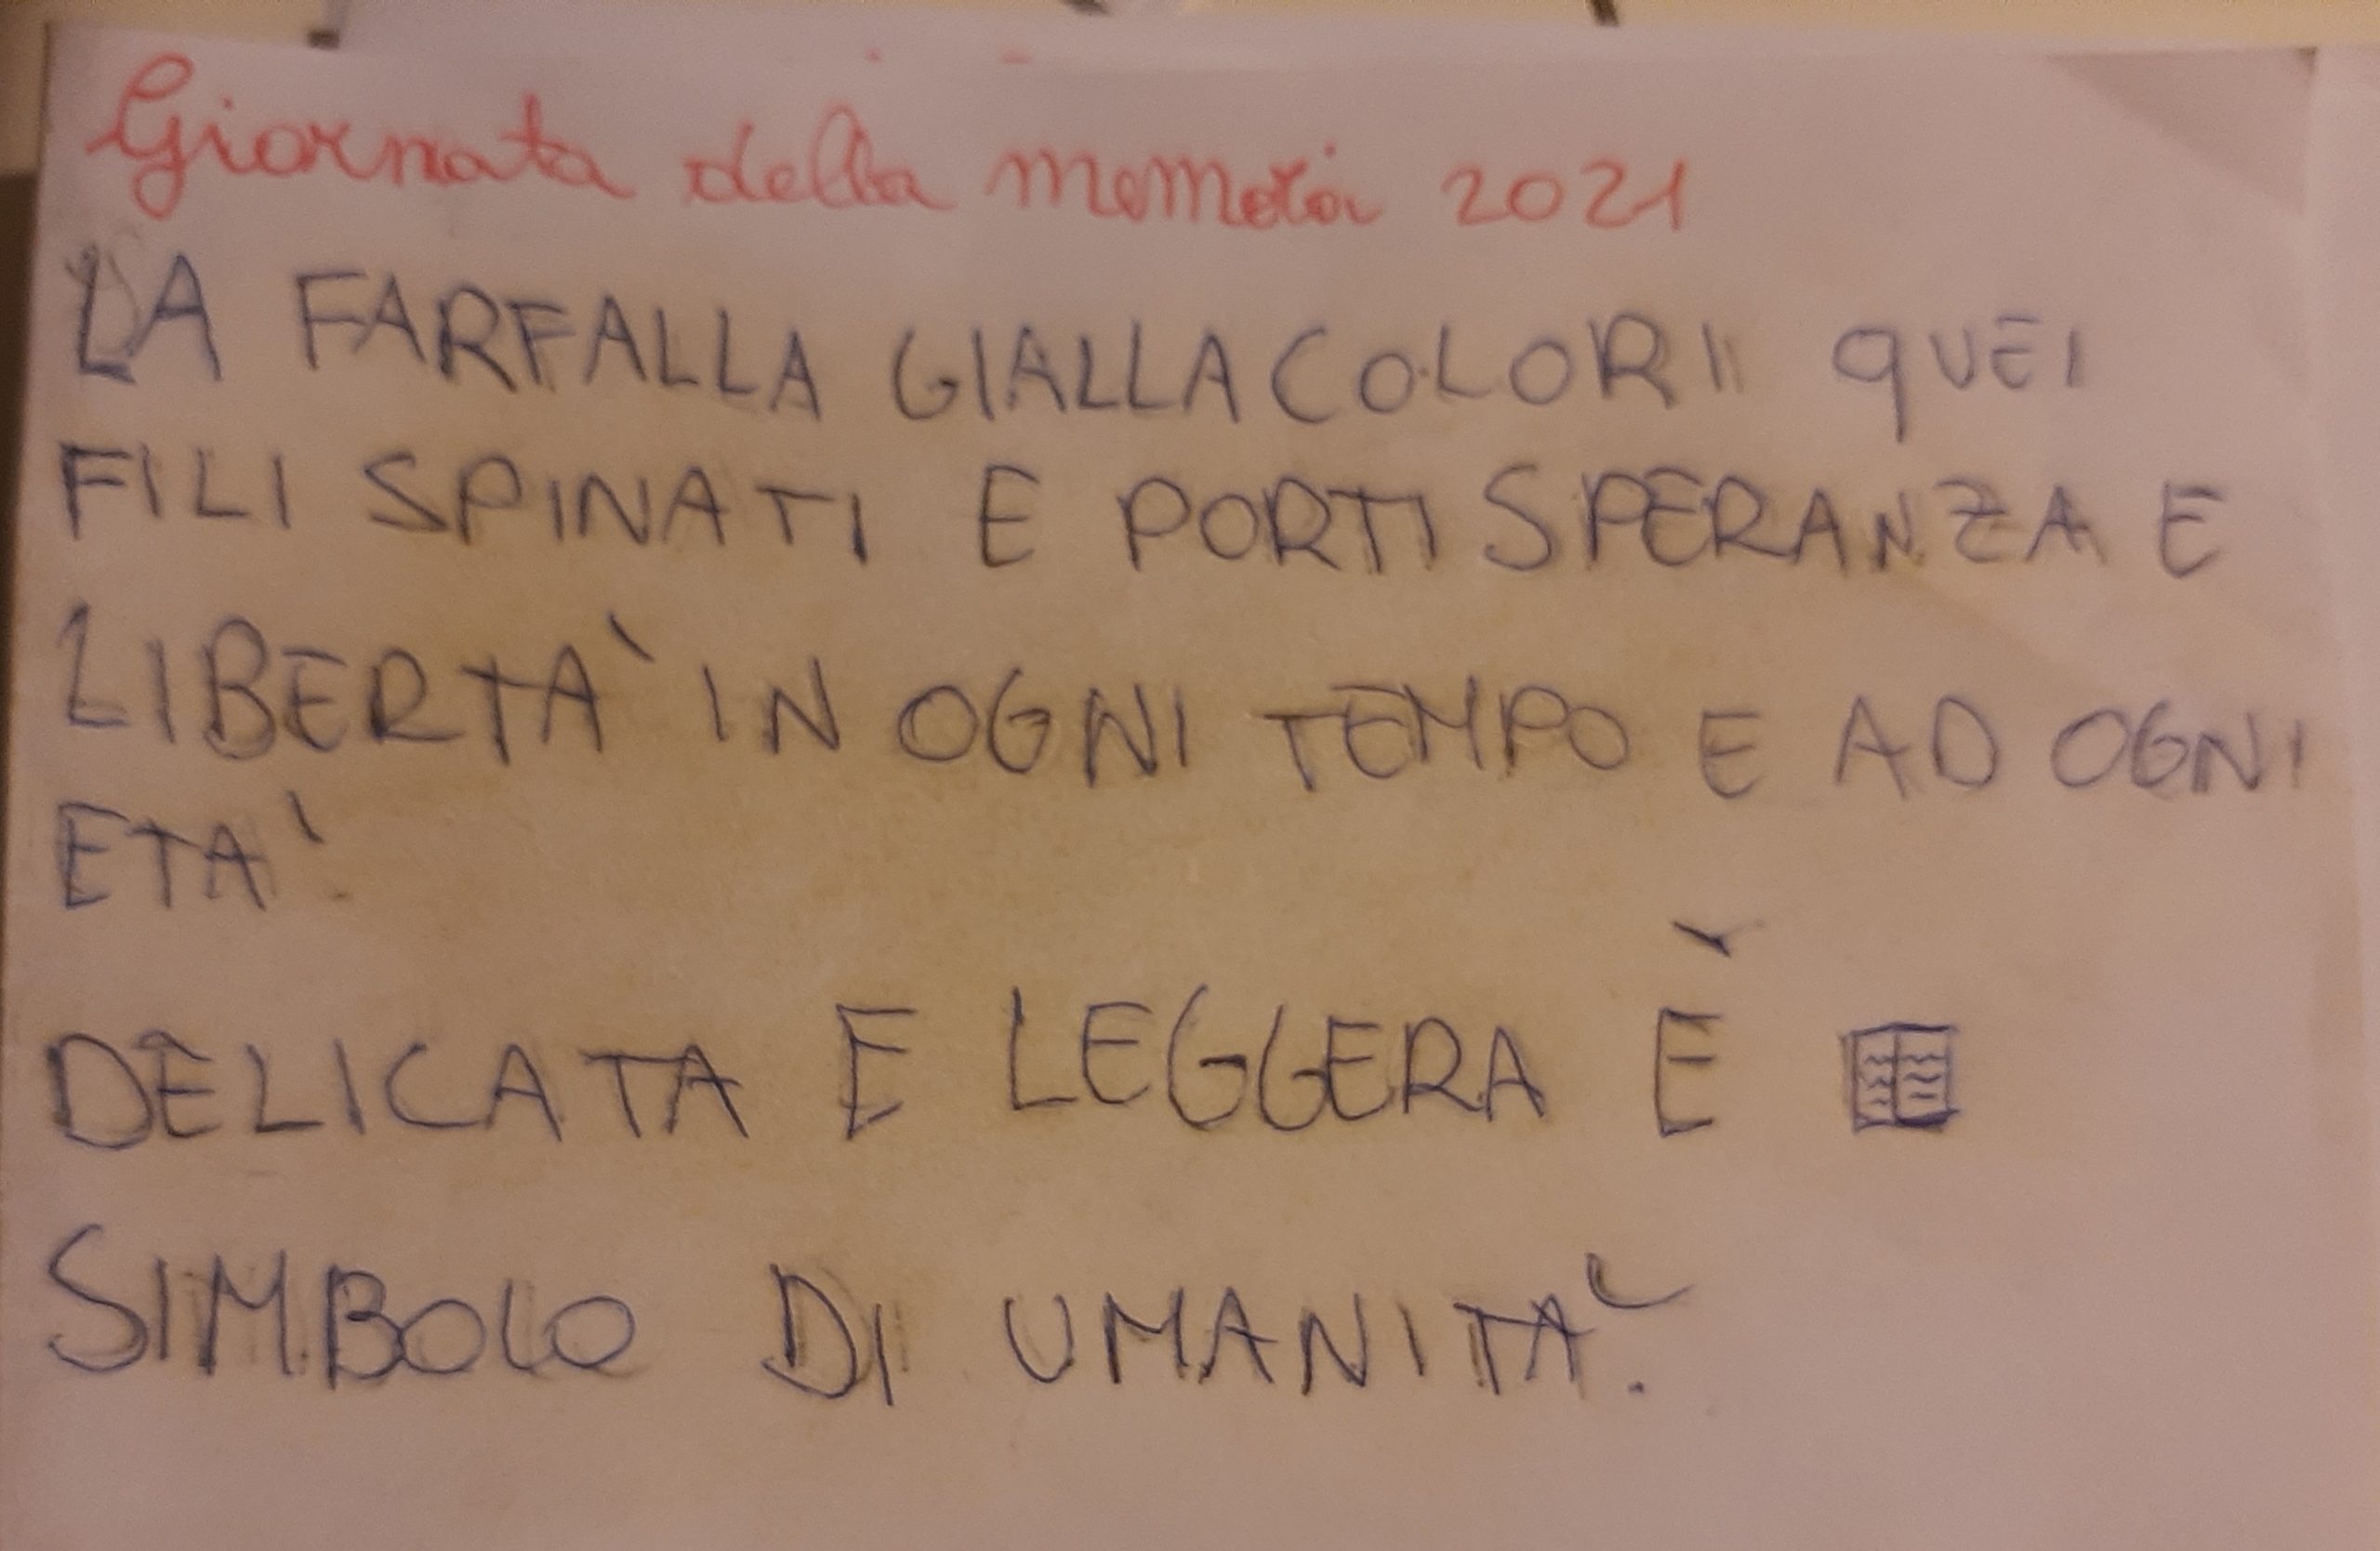 Giornata della memoria 2021
LA FARFALLA GIALLA COLORI QUEI
FILI SPINATI E PORTI SPERANZA E
LIBERTA' IN OGNI TEMPO E AD OGNI
ETA'.
DELICATA E LEGGERA È
SIMBOLO DI UMANITA'.